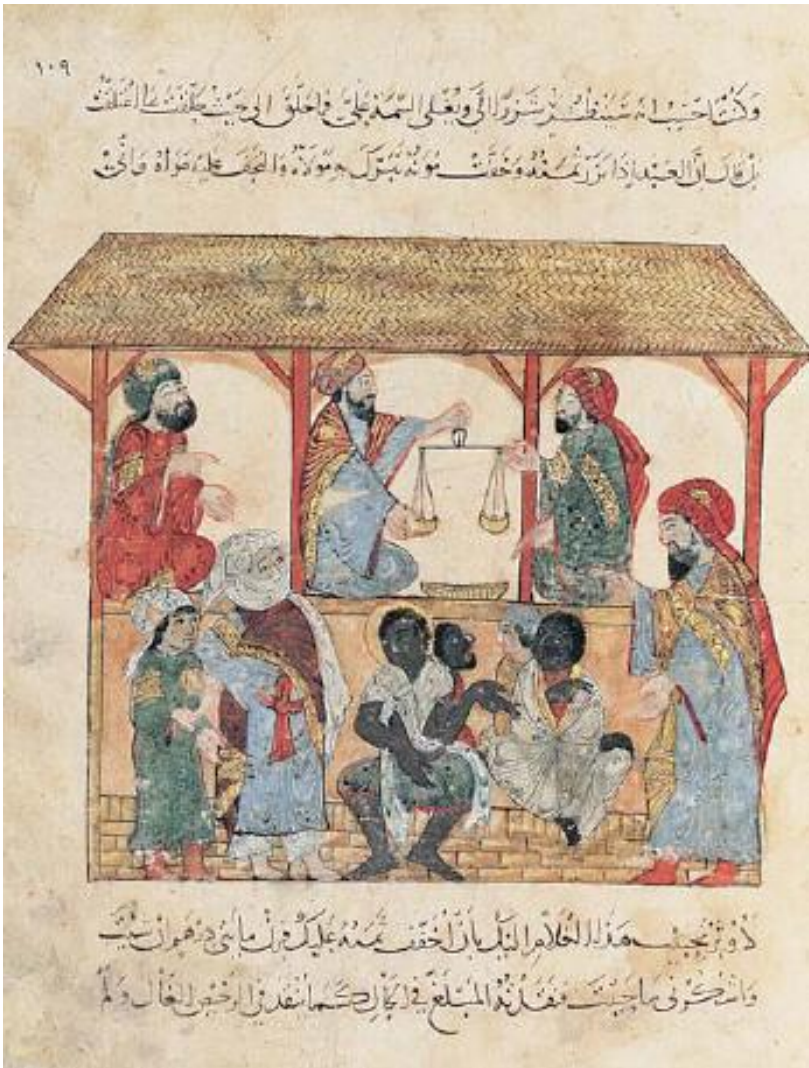 ١٠٩
وكنت احسب انه سينظر شزرا الي ويغلي السيمة علي فما حلق الى حيث حلقت اعتلقت
بل قال ان العبد اذا نزر ثمنه وخفت مونه تبرك به مولاه والتحف عليه هواه واني
لاوثر تحبيب هذا الغلام اليك بان اخفف ثمنه عليك فزن مائتي درهم ان شيت
واشكر لي ما حييت فنقدته المبلغ في الحال كما ينقد في الرخيص الغال ولم